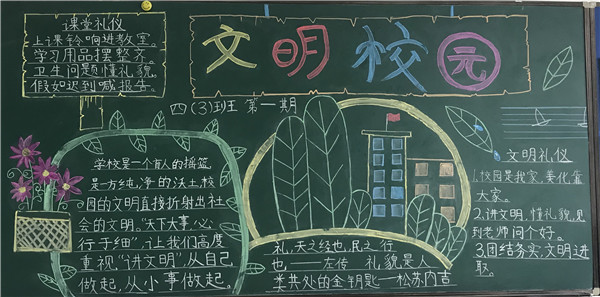 课堂礼仪
上课铃响进教室。
学习用品摆整齐。
卫生问题懂礼貌。
假如迟到喊报告。
文明校园
四(3)班 第一期
学校是一个育人的摇篮
是一方纯净的沃土,校
园的文明直接折射出社
会的文明。"天下大事,心
行于细",让我们高度
重视,"讲文明",从自己
做起,从小事做起。
礼,天之经也,民之行
也——左传 礼貌是人
类共处的金钥匙—松苏内吉
文明礼仪
1.校园是我家,美化靠
大家。
2.讲文明,懂礼貌,见
到老师问个好。
3.团结务实,文明进
取。